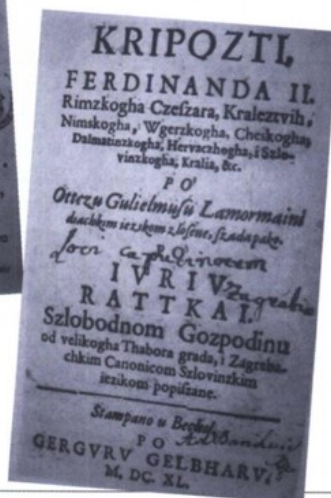 KRIPOZTI,
FERDINANDA II.
Rimzkogha Czeſzara, Kraleztvih,
Nimskogha, Wgerzkogha, Cheskogha,
Dalmatinzkogha, Hervaczhogha, i Szlo-
vinzkogha, Kralia, &c.
PO
Ottczu Gulielmuſu Lamormaini
diachkim iezikom zloſene, ſzada pako
Loci
PO
IVRIV
Zagrabie
RATTKAI.
Szlobodnom Gozpodinu
od velikogha Thabora grada, i Zagreba-
chkim Canonicom Szlovinzkim
iezikom popiſzane.
Stampano u Bechu,
PO
GERGVRV GELBHARV,
M. DC. XL.